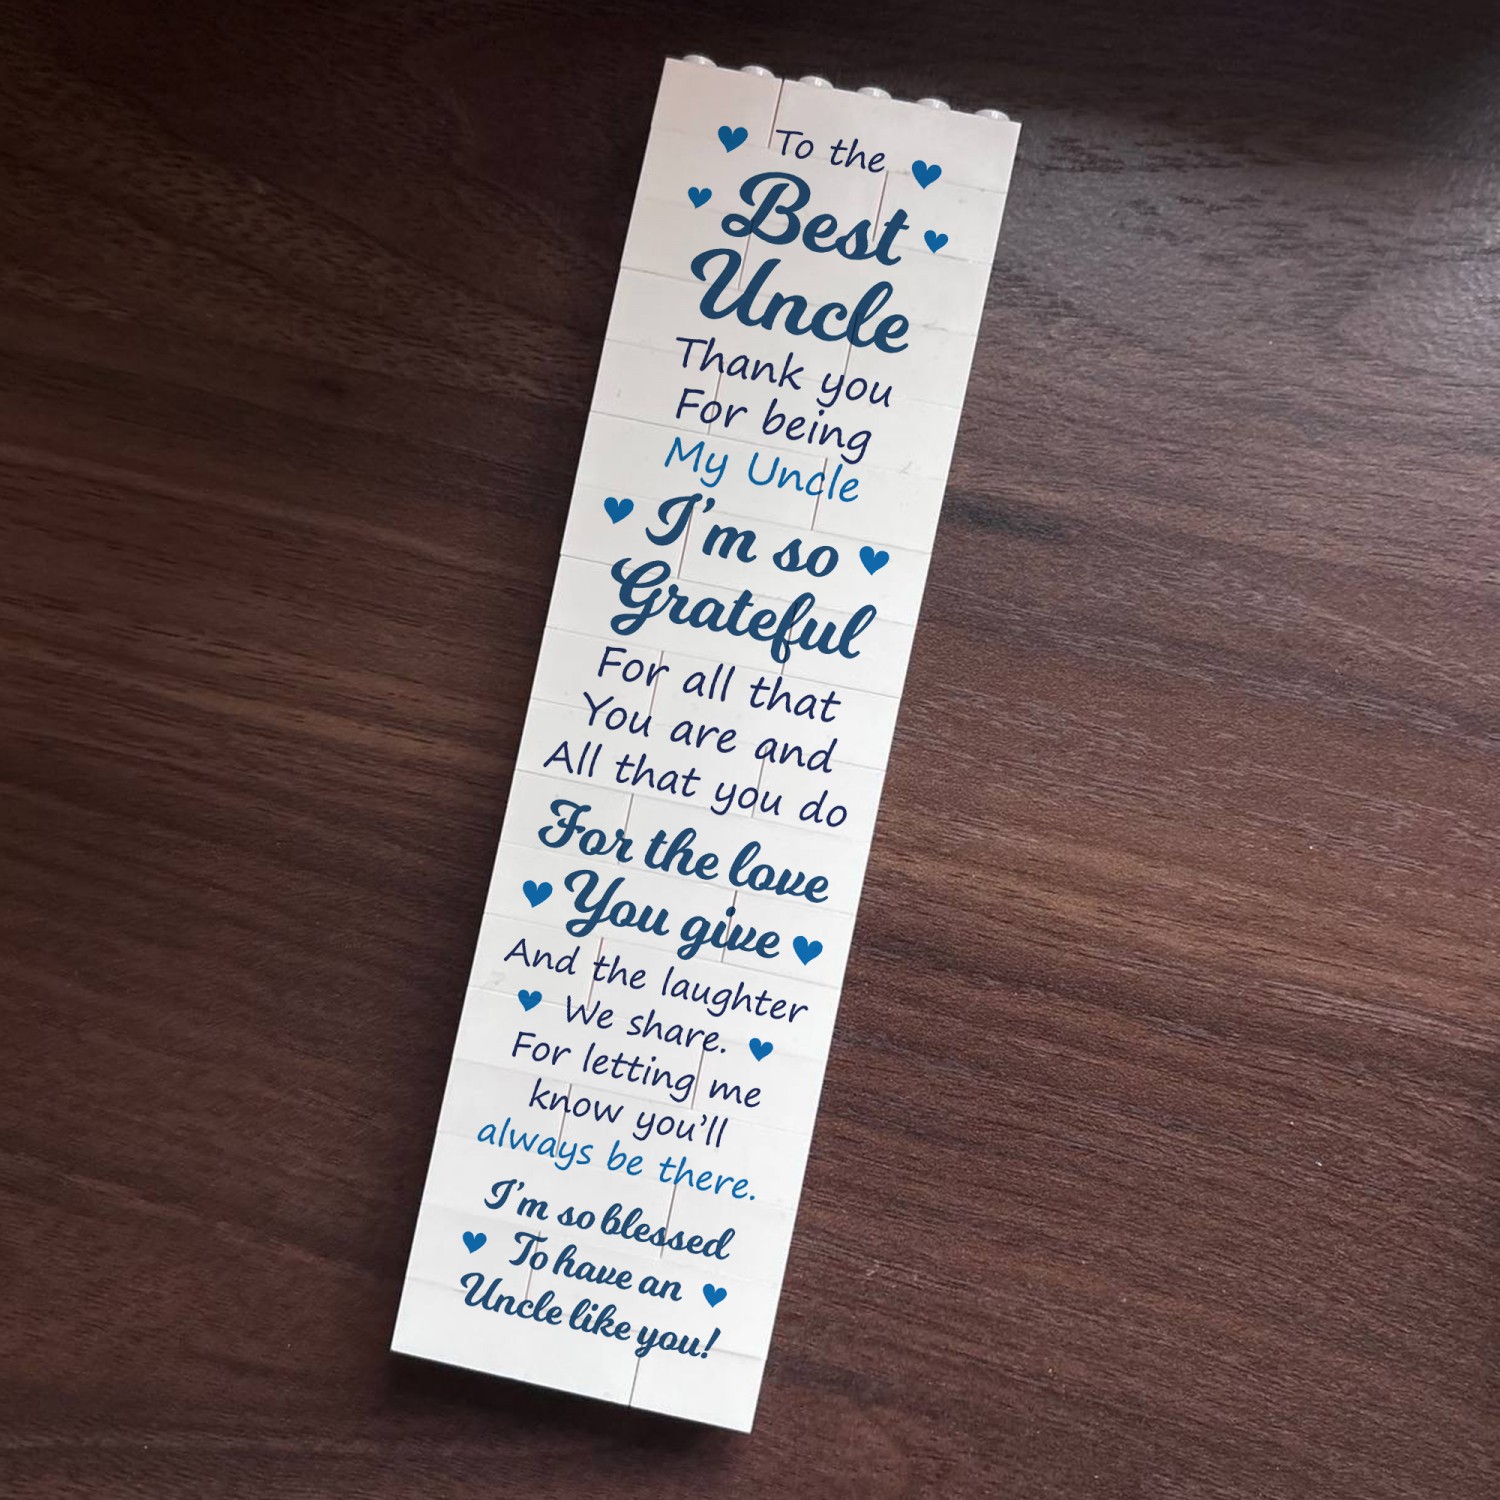 To the
Best
Uncle
Thank you
For being
My Uncle
I'm so
Grateful
For all that
You are and
All that you do
For the love
You give
And the laughter
We share.
For letting me
know you'll
always be there.
I'm so blessed
To have an
Uncle like you!